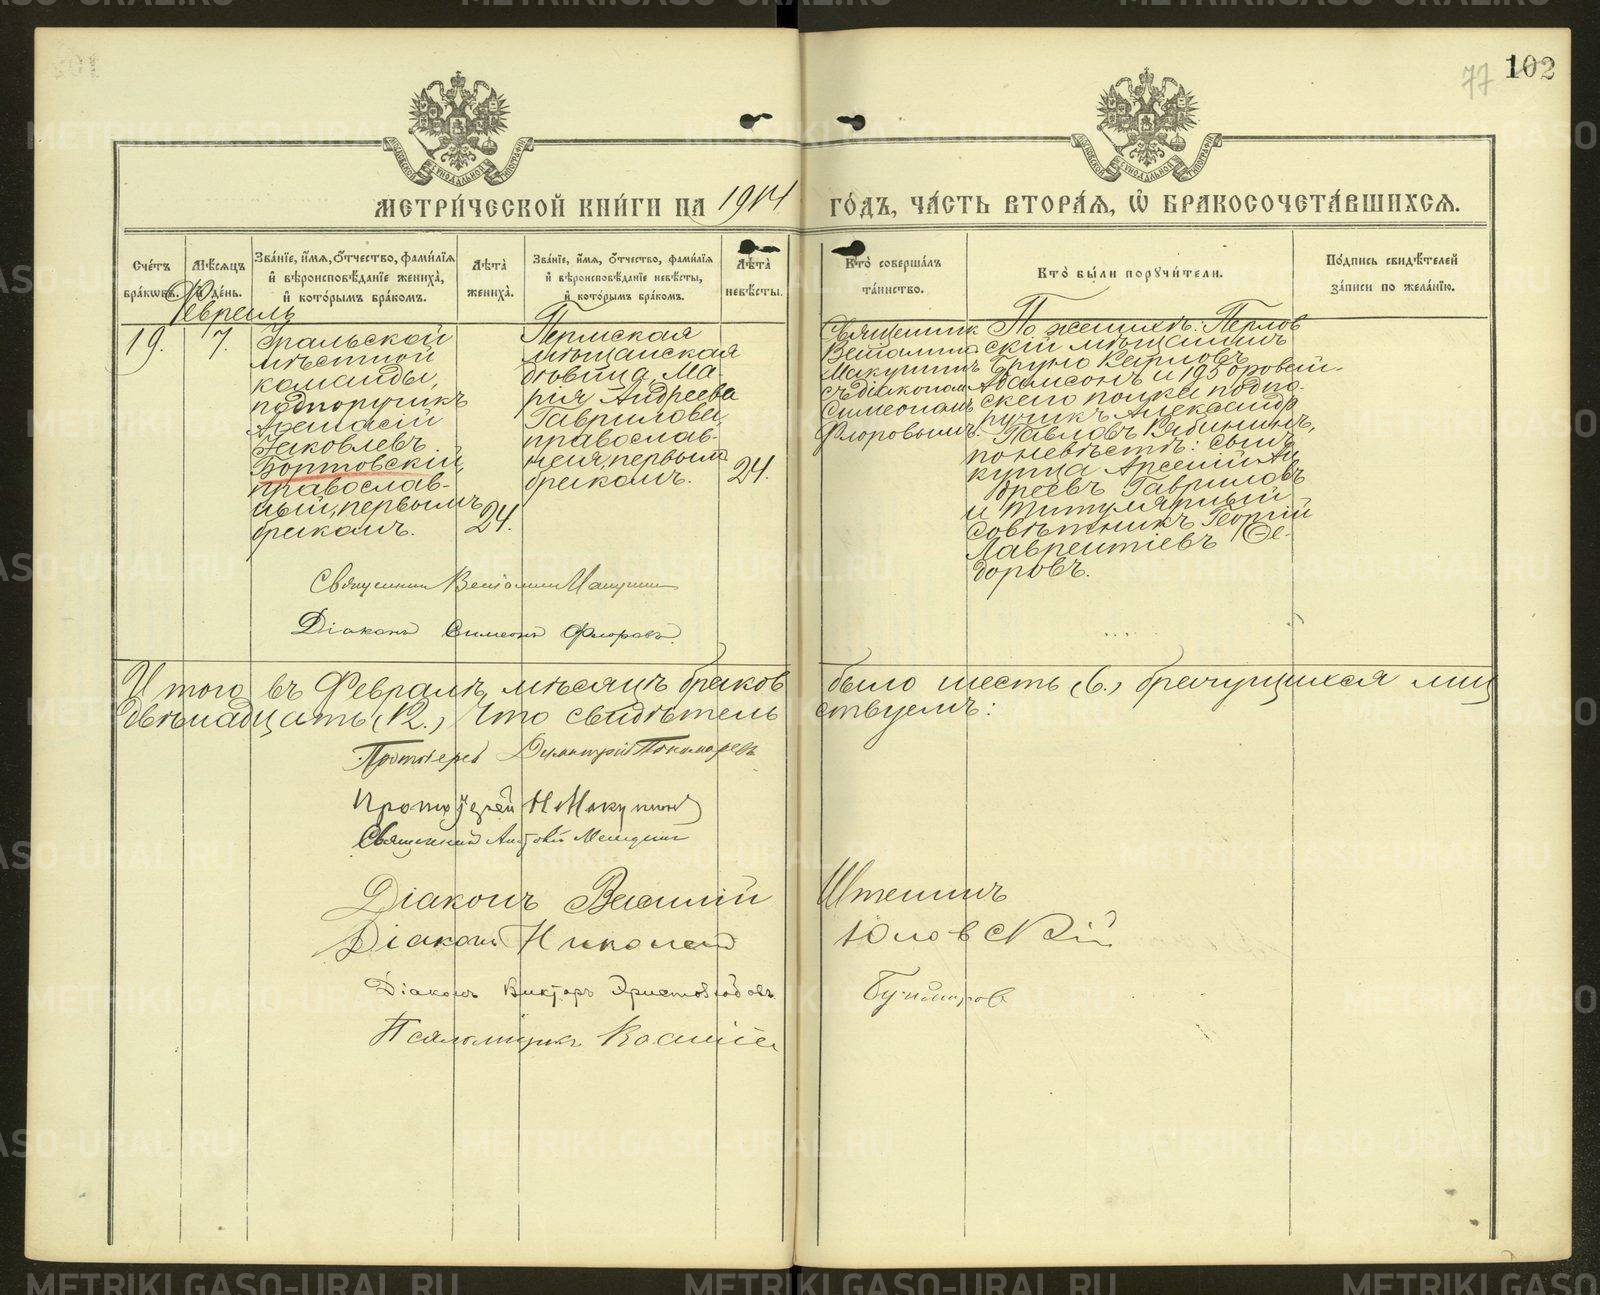 102
77
МЕТРИ́ЧЕСКОЙ КНИ́ГИ НА 1914 ГО́ДЪ, ЧА́СТЬ ВТОРА́Я, Ѡ҆ БРАКОСОЧЕТА́ВШИХСЯ.
Сче́тъ бра́кѡвъ.
Мѣ́сяцъ и де́нь.
Зва́нїе, и҆́мя, ѻ҆́тчество, фами́лїя и҆ вѣроисповѣ́данїе жениха̀, и҆ кото́рымъ бра́комъ.
Лѣ́та жениха̀.
Зва́нїе, и҆́мя, ѻ҆́тчество, фами́лїя и҆ вѣроисповѣ́данїе невѣ́сты, и҆ кото́рымъ бра́комъ.
Лѣ́та невѣ́сты.
Кто̀ соверша́лъ та́инство.
Кто̀ бы́ли порꙋчи́тели.
По́дпись свидѣ́телей за́писи по жела́нїю.
Февраль
19.
7.
Уральской
мѣстной
команды,
подпоручикъ
Афанасій
Іаковлевъ
Бортовскій,
православ-
ный, первымъ
бракомъ.
24.
Пермская
мѣщанская
дѣвица, Ма-
рія Андреева
Гаврилова,
православ-
ная, первымъ
бракомъ.
24.
Священникъ
Веніаминъ
Макушинъ
съ діакономъ
Симеономъ
Флоровымъ.
По женихѣ: Перлов
скій мѣщанинъ
Бруно Карловъ
Адамсонъ и 195 оровай-
скаго полка подпо-
ручикъ Александр
Павловъ Рябининъ,
по невѣстѣ: сынъ
купца Арсеній Ан
дреевъ Гавриловъ
и титулярный
совѣтникъ Георгій
Лаврентіевъ Ѳе-
доровъ.
Священникъ Веніаминъ Макушинъ
Діаконъ Симеонъ Флоровъ.
Итого въ Февралѣ мѣсяцѣ браков было шесть (6.) брачущихся лиц
двѣнадцать (12.) Что свидѣтель ствуемъ:
Протоіерей Димитрій Пономаревъ
Протоіерей Н Макушинъ
Священникъ
Діаконъ Василій Штенинъ
Діаконъ Николай Юловскій
Діаконъ Викторъ Христолюбовъ
Псаломщикъ